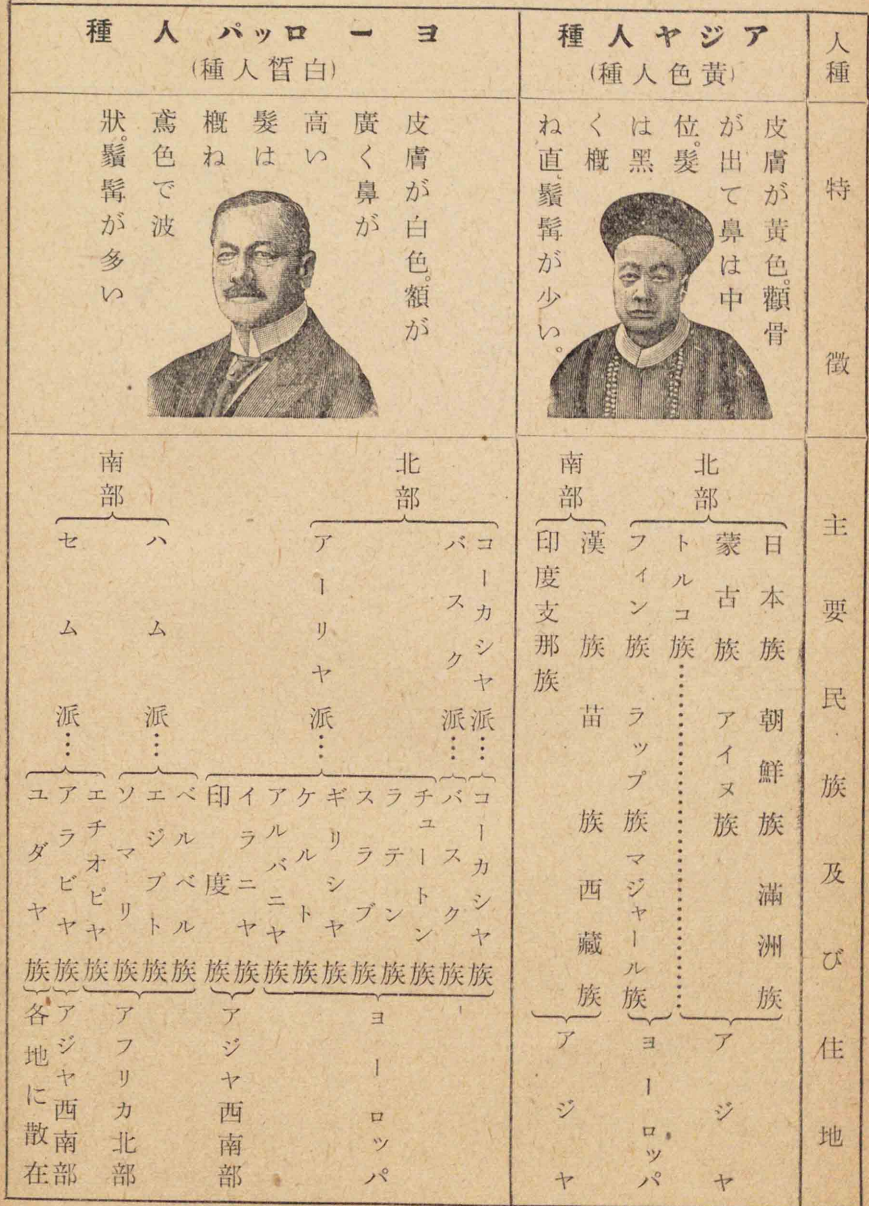 人種
特徵
主要民族及び住地
アジヤ人種
(黃色人種)
皮膚が黃色。顴骨
が出て鼻は中
位。髮
は黑
く概
ね直。鬚髯が少い。
北部
日本族 朝鮮族 滿洲族
蒙古族 アイヌ族
トルコ族
アジヤ
フィン族 ラップ族 マジャール族
ヨーロッパ
南部
漢族 苗族 西藏族
印度支那族
アジヤ
ヨーロッパ人種
(白皙人種)
皮膚が白色。額が
廣く鼻が
高い
髮は
概ね
鳶色で波
狀。鬚髯が多い
北部
コーカシヤ派…
コーカシヤ族
バスク派…
バスク族
アーリヤ派…
チュートン族
ラテン族
スラブ族
ギリシヤ族
ケルト族
アルバニヤ族
ヨーロッパ
イラニヤ族
印度族
アジヤ西南部
南部
ハム派…
ベルベル族
エジプト族
ソマリ族
セム派…
エチオピヤ族
アフリカ北部
アラビヤ族
アジヤ西南部
ユダヤ族
各地に散在